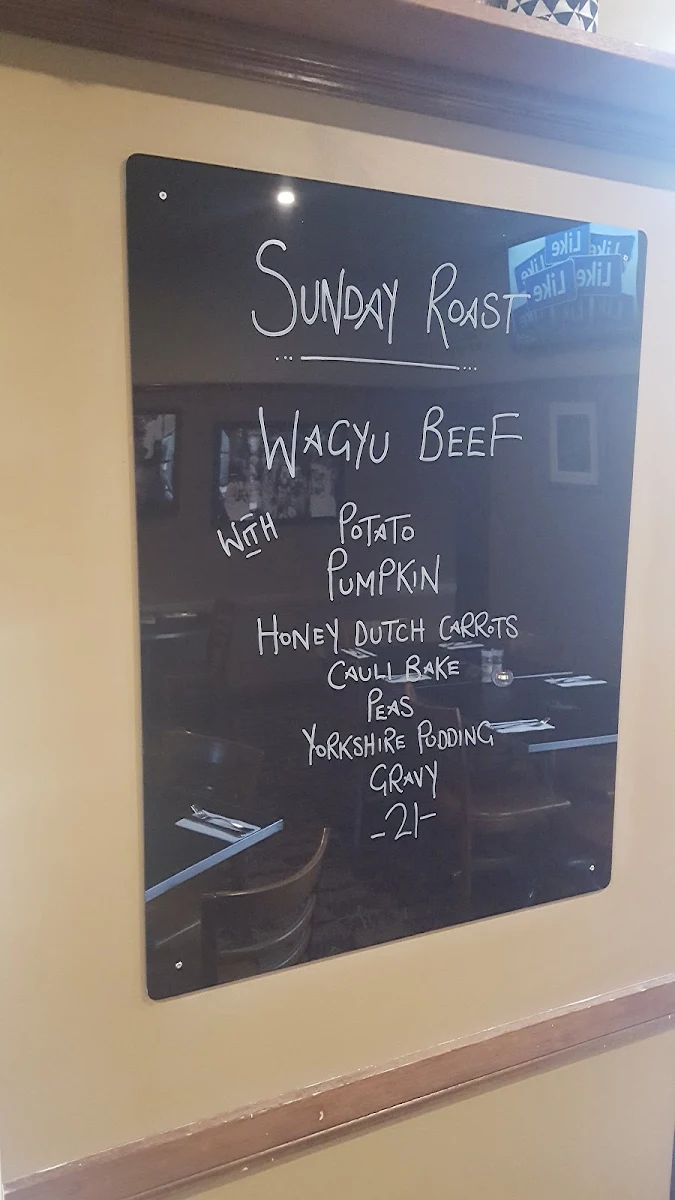 SUNDAY ROAST
WAGYU BEEF
WITH POTATO
PUMPKIN
HONEY DUTCH CARROTS
CAULI BAKE
PEAS
YORKSHIRE PUDDING
GRAVY
-21-
Like
Like
Like
Like
Like